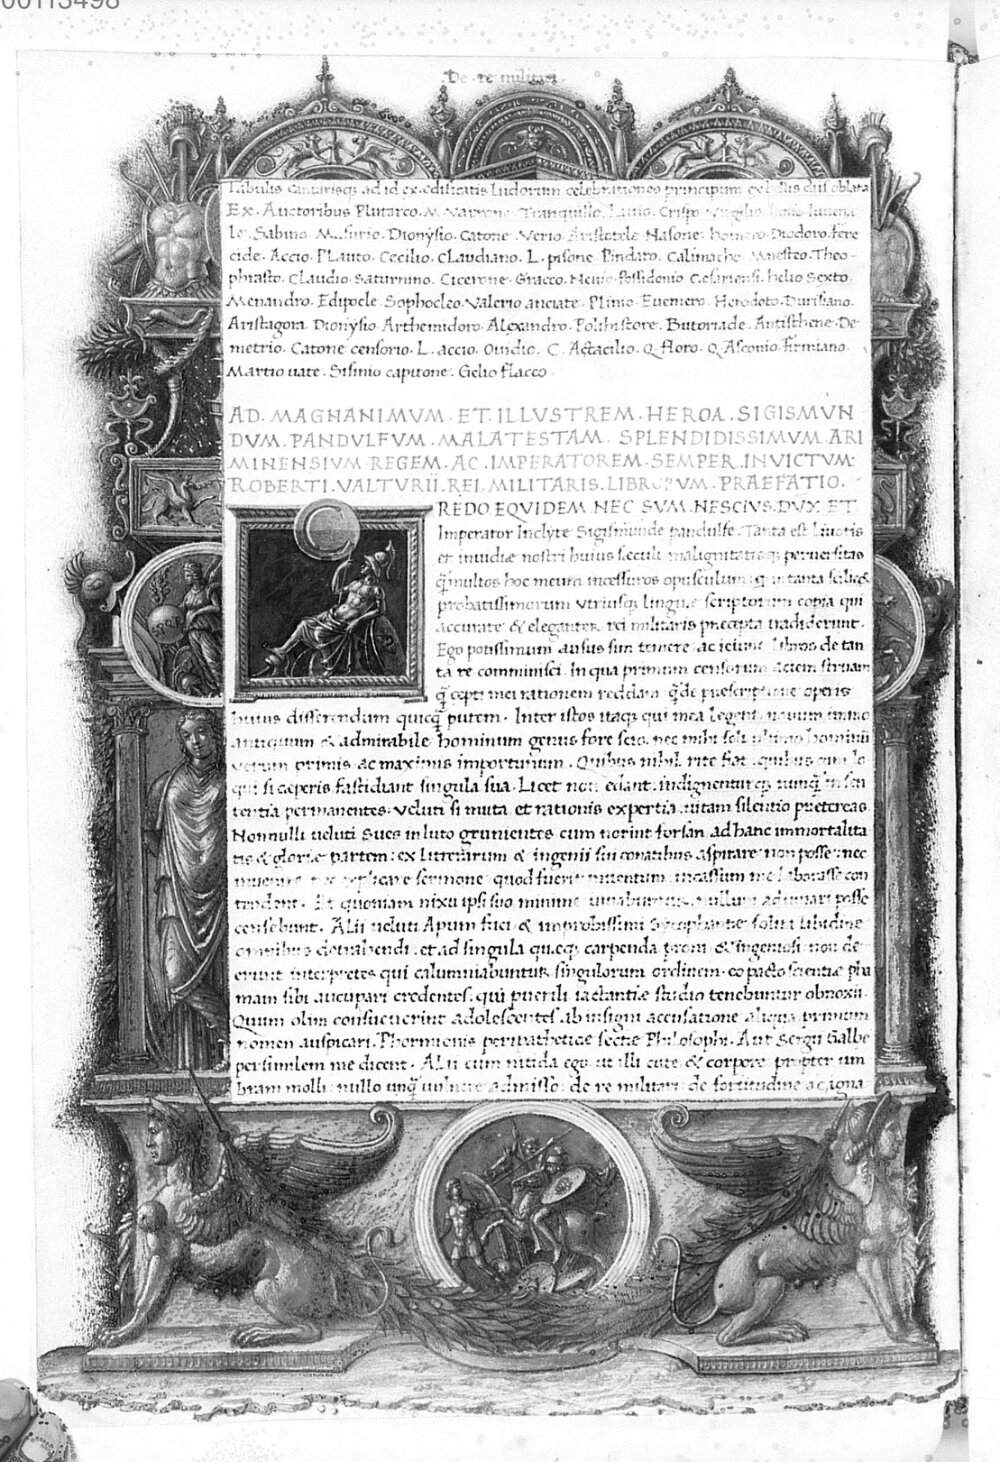 00113498
De re militari
Tabulis ad id ex edificatis Ludorum celebrationes principum
Ex. Auctoribus Plutarco. M. Varrone. Tranquillo. Crispo. Virgilio. Iuuena
le. Sabino. Dionysio. Catone. Verio. Aristotele. Nasone. homero. Diodoro. Fere
cide. Accio. Plauto. Cecilio. Claudiano. L. pisone. Pindaro. Calimacho. Mnesteo. Theo-
phrasto. Claudio. Saturnino. Cicerone. Gracco. Neuio. Possidonio. Cesariensi. helio Sexto.
Menandro. Edipocle. Sophocleo. Valerio anciate. Plinio. Euemero. Herodoto. Durisiano.
Aristagora. Dionysio. Arthemidoro. Alexandro. Polihistore. Butoriade. Antisthene. De-
metrio. Catone censorio. L. accio. Ouidio. C. Actacilio. Q. floro. Q. Asconio. firmiano.
Martio uate. Sisinio capitone. Gelio flacco.
AD. MAGNANIMVM. ET. ILLVSTREM. HEROA. SIGISMVN
DVM. PANDVLFVM. MALATESTAM. SPLENDIDISSIMVM. ARI
MINENSIVM. REGEM. AC. IMPERATOREM. SEMPER. INVICTVM:
ROBERTI. VALTVRII. REI. MILITARIS. LIBRORVM. PRAEFATIO.
REDO. EQVIDEM. NEC SVM. NESCIVS. DVX ET.
Imperator Inclyte Sigismunde pandulfe. Tanta est Liuoris
et inuidiæ nostri huius seculi malignitatisq; peruersitas
q̄ multos hoc meum incessuros opusculum: q in tanta
probatissimorum vtriusq; linguæ scriptorum copia qui
accurate & eleganter rei militaris præcepta tradiderunt.
Ego potissimum ausus sim temere ac ieiune libros de tan
ta re comminisci. In qua primum censorum aciem struam
q̄ cepti mei rationem reddam q̄ de prescriptione operis
huius disserendum quicq̄ putem. Inter istos itaq; qui mea legent nouum immo
antiquum & admirabile hominum genus fore scio. nec mihi soli ultimo hominū
verum primis ac maximis importunum. Quibus nihil rite fiat. quibus cum lo
qui si ceperis fastidiant singula sua. Licet non edant. indignenturq; nunq̄ in sen
tentia permanentes. veluti si muta et rationis expertia. uitam silentio pretereas
Nonnulli ueluti Sues in luto grunientes cum norint forsan ad hanc immortalita
tis & gloriæ partem: ex litterarum & ingenii sui conatibus aspirare non posse: nec
inuenire nec explicare sermone quod fuerit inuentum. incassum me laborasse con
tendent. Et quoniam nixu ipsi suo minime iuuabuntur. nullum adiuuari posse
censebunt. Alii ueluti Apum fuci & improbissimi Sycophantæ soluta libidine
omnibus detrahendi. et ad singula quæq; carpenda proni & ingeniosi non de
erunt interpretes qui calumniabuntur singulorum ordinem. eo pacto scientiæ pla
mam sibi aucupari credentes. qui puerili iactantiæ studio tenebuntur obnoxii.
Quum olim consueuerint adolescentes. ab insigni accusatione aliqua primum
nomen auspicari. Phormionis peripatheticæ sectæ Philosophi. Aut Sergii Galbe
persimilem me dicent. Alii cum nitida ego. ut illi cute & corpore propter um
bram molli: nullo unq̄ uulnere admisso: de re militari: de fortitudine ac agna